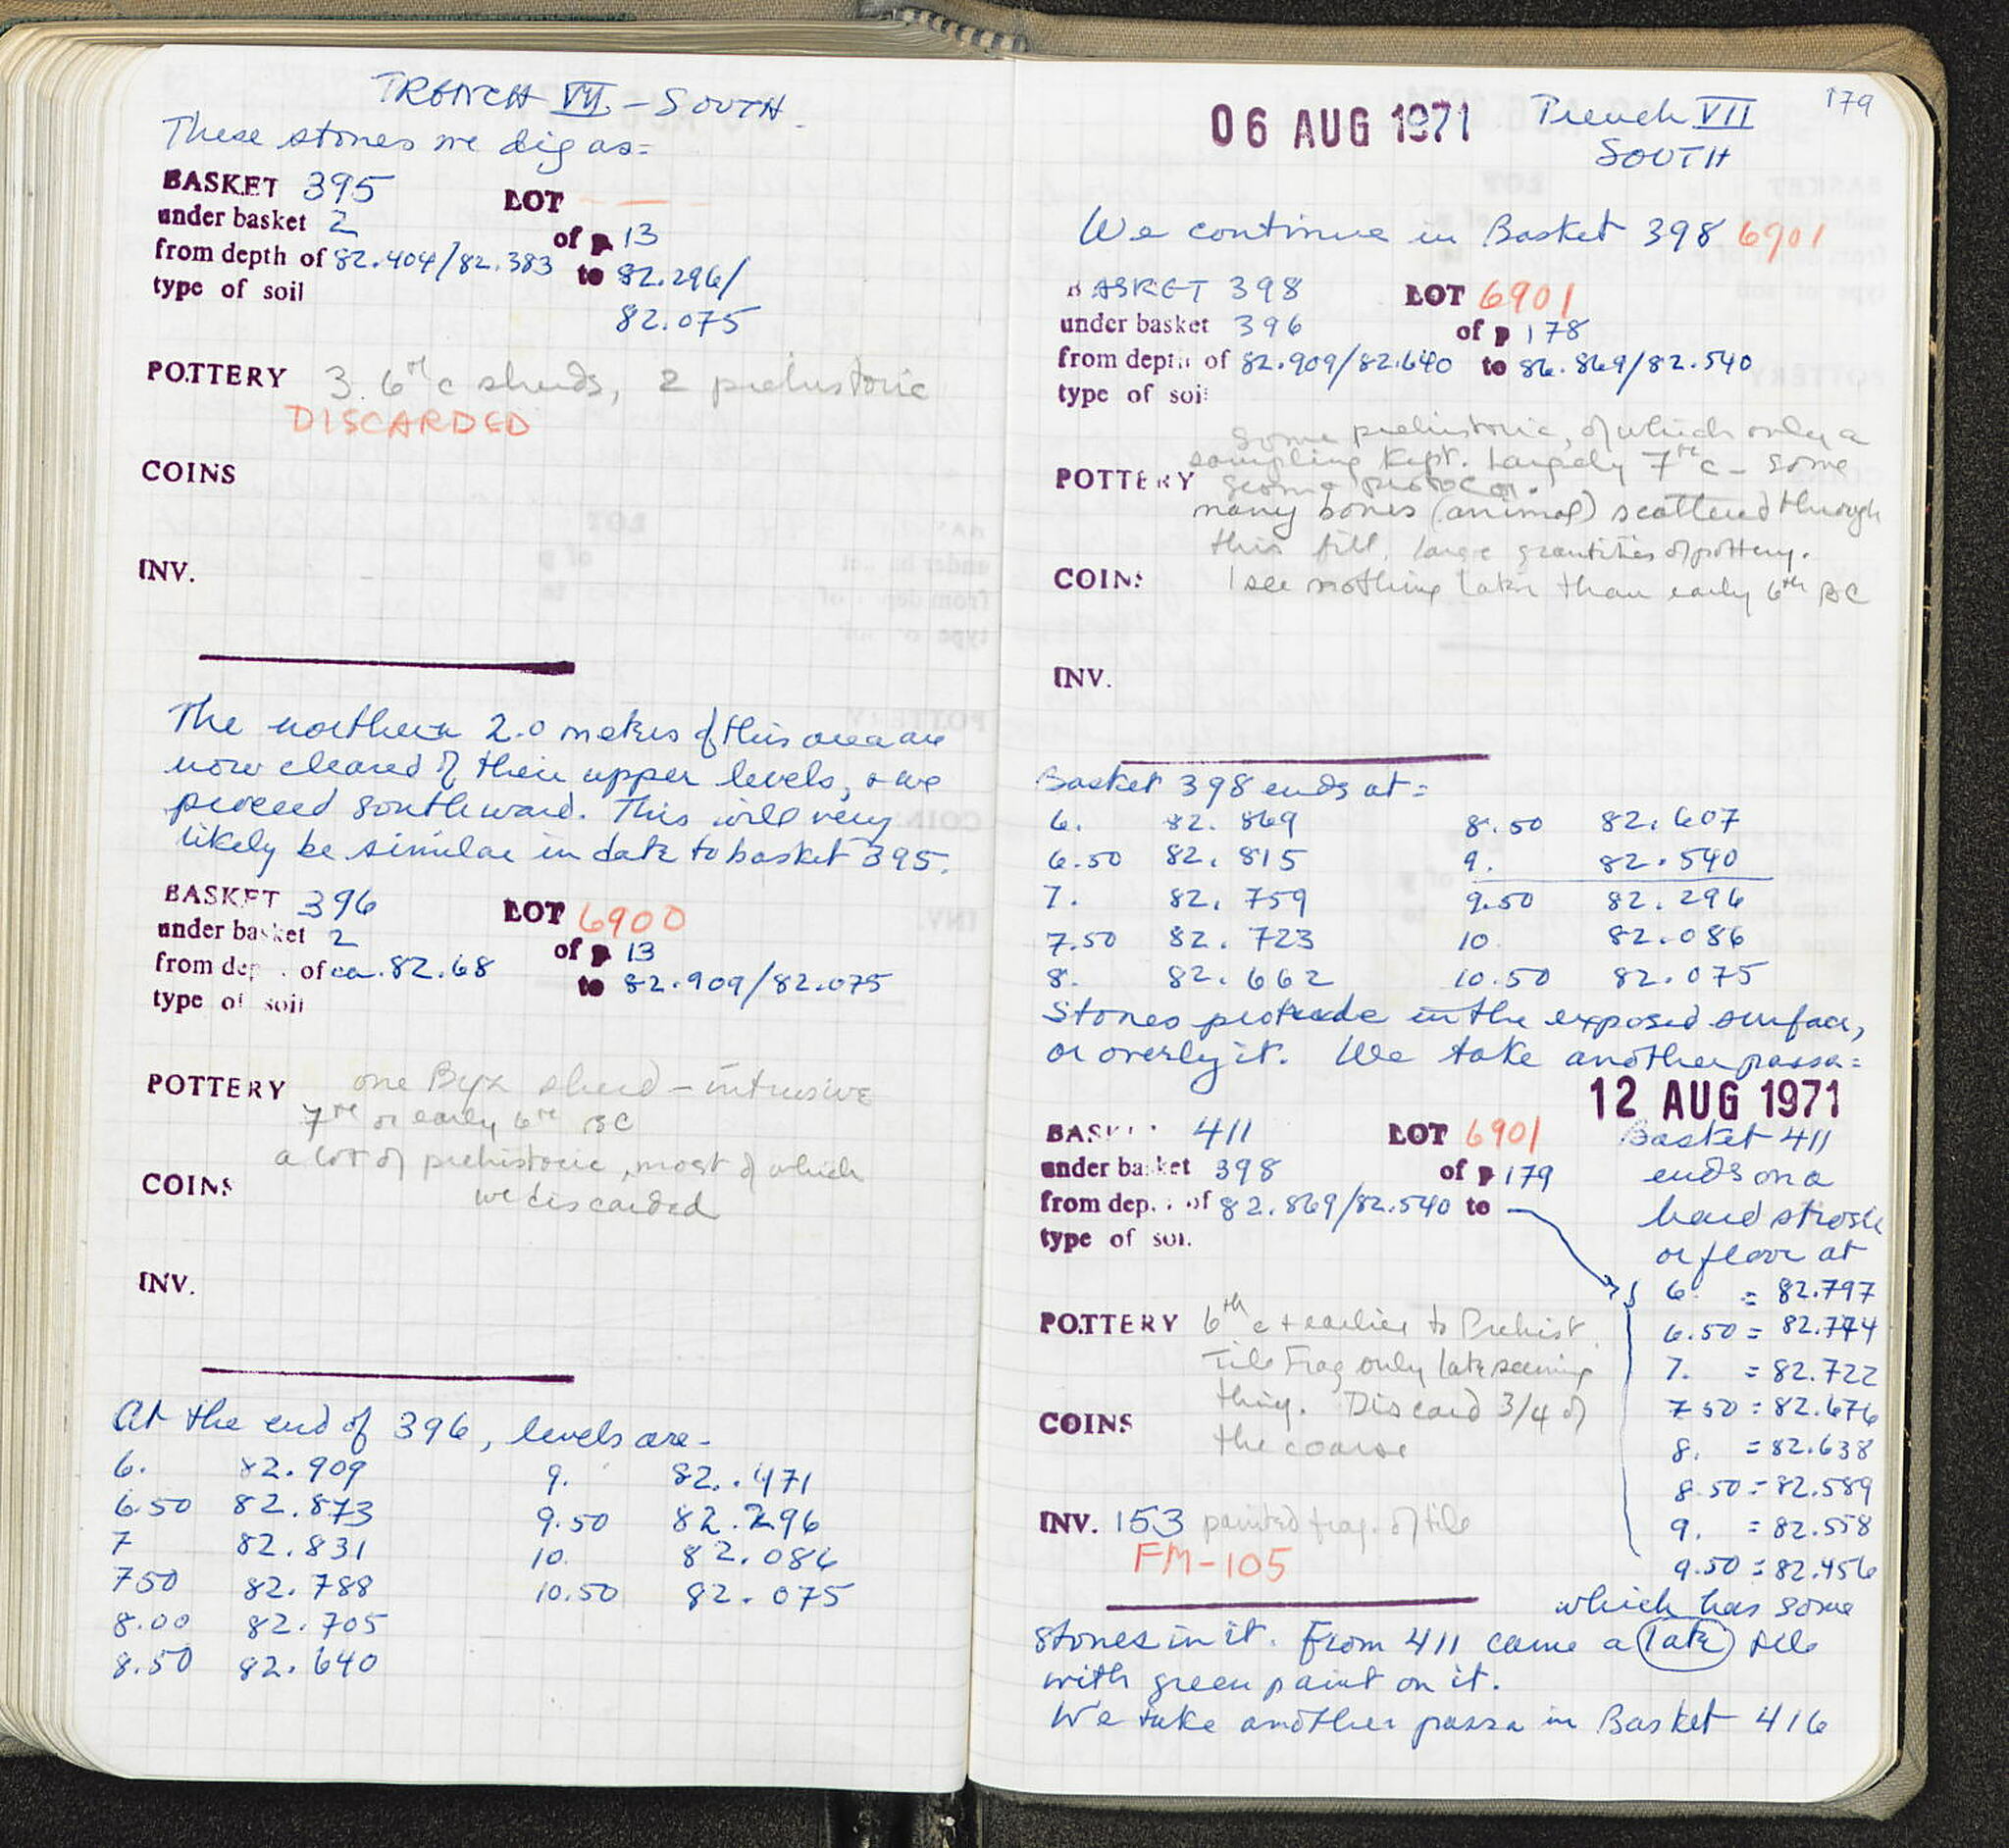 TRENCH VII - SOUTH
These stones we dig as=
BASKET 395 LOT - — -
under basket 2 of p 13
from depth of 82.404/82.383 to 82.296/
82.075
type of soil
POTTERY 3 6th c sherds, 2 prehistoric
DISCARDED
COINS
INV.
The northern 2.0 metres of this area are
now cleared of their upper levels, + we
proceed southward. This will very
likely be similar in date to basket 395.
BASKET 396 LOT 6900
under basket 2 of p 13
from dep of ca. 82.68 to 82.909/82.075
type of soil
POTTERY one Byz sherd - intrusive
7th or early 6th BC
a lot of prehistoric, most of which
we discarded
COINS
INV.
At the end of 396, levels are-
6. 82.909 9. 82.471
6.50 82.873 9.50 82.296
7 82.831 10. 82.086
750 82.788 10.50 82.075
8.00 82.705
8.50 82.640
179
06 AUG 1971 Trench VII
SOUTH
We continue in Basket 398 6901
BASKET 398 LOT 6901
under basket 396 of p 178
from depth of 82.909/82.640 to 86.869/82.540
type of soil
some prehistoric, of which only a
sampling kept. Largely 7th c - some
POTTERY geom + protocor.
many bones (animal) scattered through
this fill, large quantities of pottery.
COINS I see nothing later than early 6th BC
INV.
Basket 398 ends at=
6. 82.869 8.50 82.607
6.50 82.815 9. 82.540
7. 82.759 9.50 82.296
7.50 82.723 10 82.086
8. 82.662 10.50 82.075
Stones protrude in the exposed surface,
or overly it. We take another passa=
12 AUG 1971
BASKET 411 LOT 6901
under basket 398 of p 179
from dep. of 82.869/82.540 to
type of soil
Basket 411
ends on a
hard strosis
or floor at
6. = 82.797
6.50 = 82.774
7. = 82.722
7 50 = 82.676
8. = 82.638
8.50 = 82.589
9. = 82.558
9.50 = 82.456
POTTERY 6th c + earlier to Prehist.
Tile Frag only late seeming
thing. Discard 3/4 of
COINS the coarse
INV. 153 painted frag. of tile
FM-105
which has some
stones in it. From 411 came a late tile
with green paint on it.
We take another passa in Basket 416